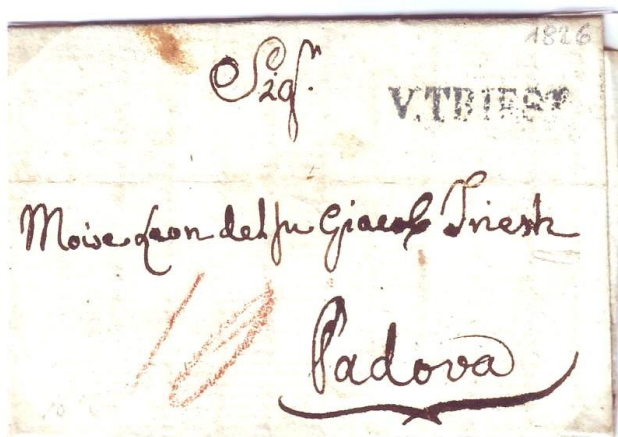 1826
Sigr.
V.TRIEST
Moise Leon del fu Giacob Trieste
10
Padova